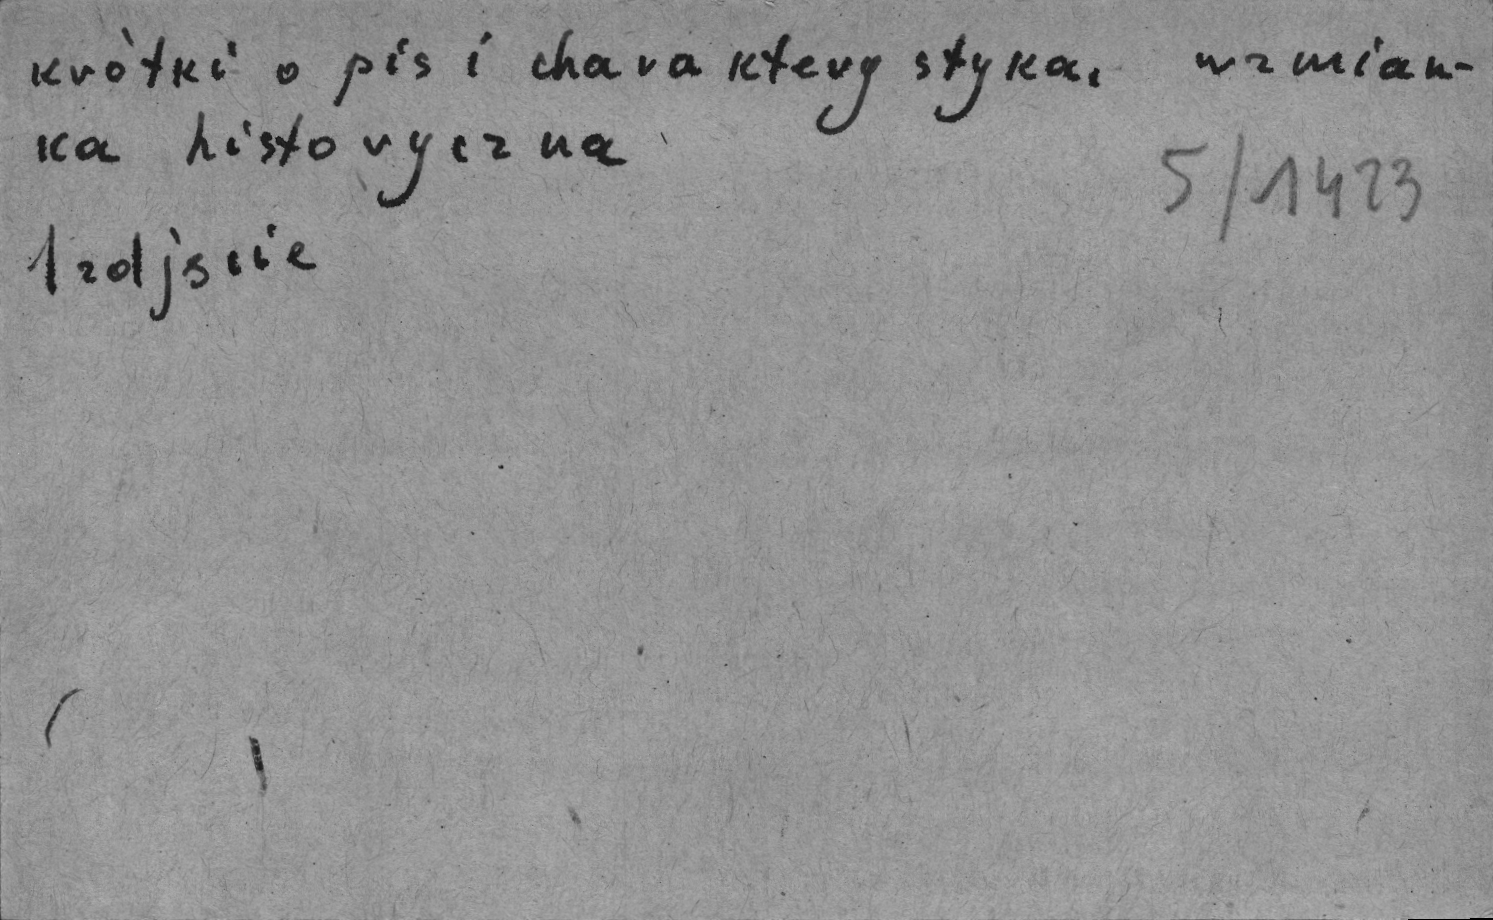 krótki opis i charakterystyka, wzmian-
ka historyczna
5/1423
1 zdjscie